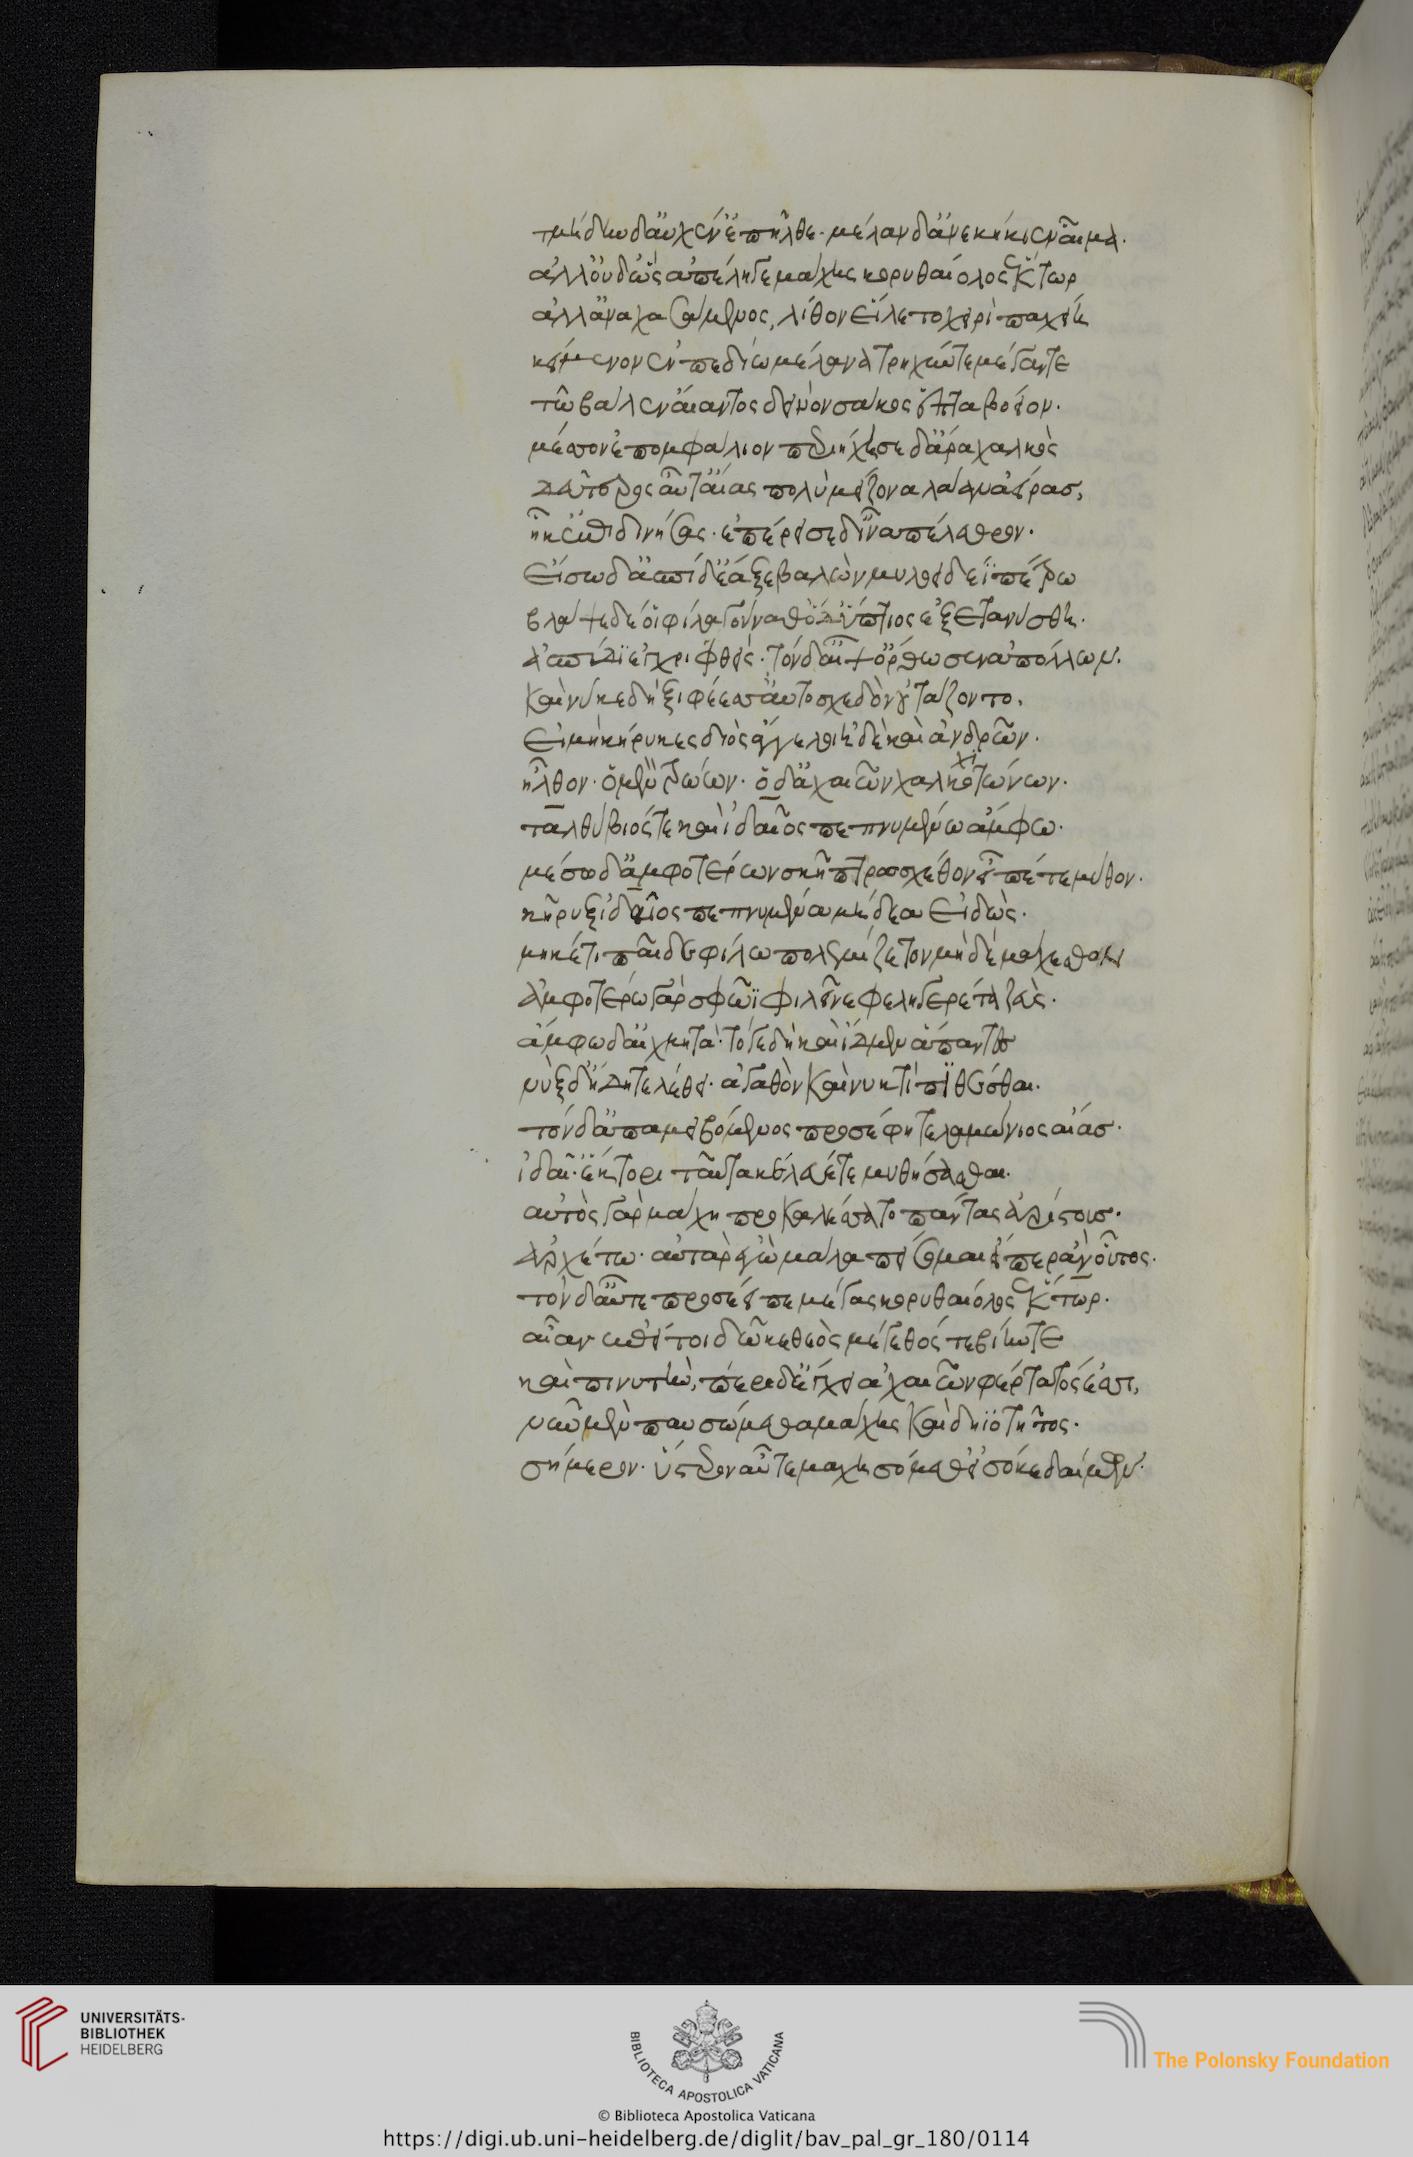 τμήδην δ' αὐχέν' ἐπῆλθε· μέλαν δ' ἀνεκήκιεν αἷμα.
ἀλλ' οὐδ' ὧς ἀπέληγε μάχης κορυθαίολος Ἕκτωρ
ἀλλ' ἀναχασσάμενος, λίθον εἵλετο χειρὶ παχείῃ
κείμενον ἐν πεδίω μέλανα τρηχύν τε μέγαν τε
τῶ βάλεν αἴαντος δεινὸν σάκος ἑπταβόειον.
μέσσον ἐπομφάλιον περιήχησε δ' ἄρα χαλκὸς
δεύτερος αὖτ' αἴας πολὺ μείζονα λᾶαν ἀείρας,
ἧκ' ἐπιδινήσας· ἐπέρεισε δὲ ἶν' ἀπέλεθρον.
εἴσω δ' ἀσπίδ' ἔαξε βαλὼν μυλοειδέϊ πέτρω
βλάψε δέ οἱ φίλα γούναθ' ὁ δ' ὕπτιος ἐξετανύσθη.
ἀσπίδι ἐγχριφθείς· τὸν δ' αἶψ' ὤρθωσεν ἀπόλλων.
καὶ νύ κε δὴ ξιφέεσσ' αὐτοσχεδὸν οὐτάζοντο.
εἰ μὴ κήρυκες διὸς ἄγγελοι ἠδὲ καὶ ἀνδρῶν.
ἦλθον· ὁ μὲν τρώων· ὁ δ' ἀχαιῶν χαλκοχιτώνων.
ταλθύβιός τε καὶ ἰδαῖος πεπνυμένω ἄμφω.
μέσσω δ' ἀμφοτέρων σκῆπτρα σχέθον εἶπέ τε μῦθον.
κῆρυξ ἰδαῖος πεπνυμένα μήδεα εἰδώς.
μηκέτι παῖδε φίλω πολεμίζετον μὴ δὲ μάχεσθον
ἀμφοτέρω γὰρ σφῶϊ φιλεῖ νεφεληγερέτα ζεὺς.
ἄμφω δ' αἰχμητά· τό γε δὴ καὶ ἴδμεν ἅπαντες
νὺξ δ' ἤδη τελέθει· ἀγαθὸν καὶ νυκτὶ πιθέσθαι.
τὸν δ' ἀπαμειβόμενος προσέφη τελαμώνιος αἴας.
ἰδαῖ' ἕκτορα ταῦτα κελεύετε μυθήσασθαι.
αὐτὸς γὰρ χάρμη προκαλέσσατο πάντας ἀρίστους.
ἀρχέτω· αὐτὰρ ἐγὼ μάλα πείσομαι εἴπερ ἂν οὗτος.
τὸν δ' αὖτε προσέειπε μέγας κορυθαίολος Ἕκτωρ.
αἶαν ἐπεί τοι δῶκε θεὸς μέγεθός τε βίην τε
καὶ πινυτήν, περὶ δ' ἔγχει ἀχαιῶν φέρτατός ἐσσι,
νῦν μὲν παυσώμεσθα μάχης καὶ δηϊοτῆτος.
σήμερον· ὕστερον αὖτε μαχησόμεθ' εἰσόκε δαίμων
UNIVERSITÄTS-
BIBLIOTHEK
HEIDELBERG
BIBLIOTECA APOSTOLICA VATICANA
The Polonsky Foundation
© Biblioteca Apostolica Vaticana
https://digi.ub.uni-heidelberg.de/diglit/bav_pal_gr_180/0114